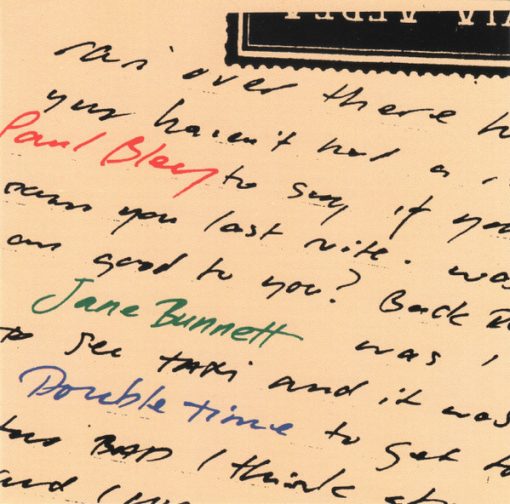 VIA AEREA
over there
you haven't had a
Paul Bley to say if you
you last nite. was
good to you? Back
Jane Bunnett was,
to see TAXI and it was
Double time to get
BAD I think
and